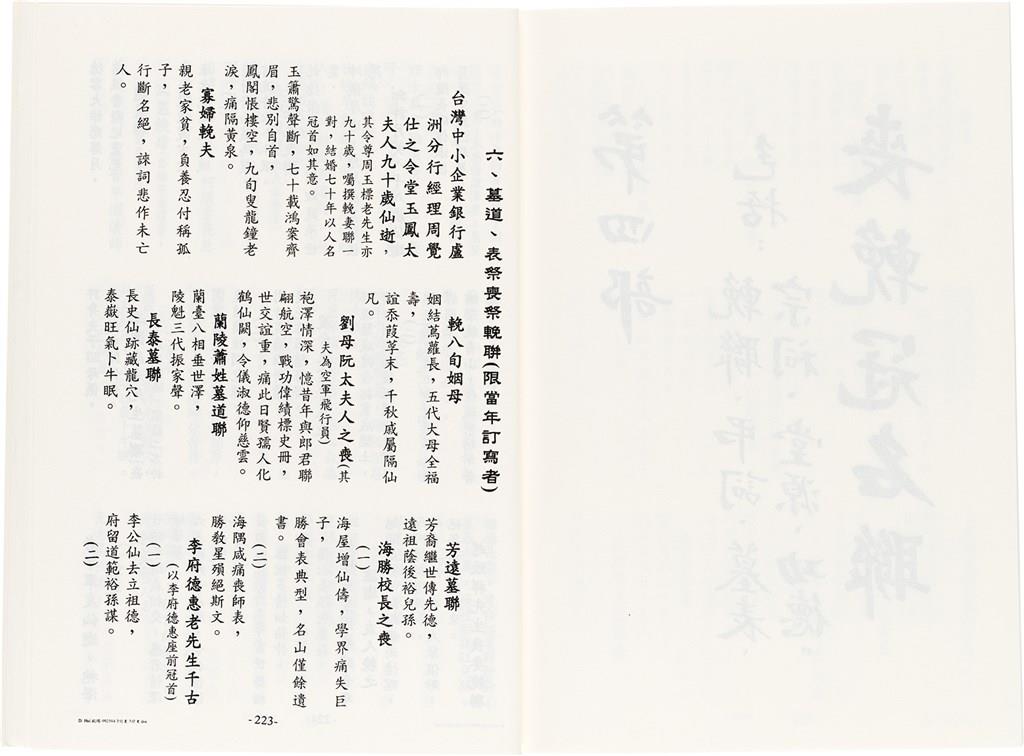 六、墓道、表祭喪祭輓聯(限當年訂寫者)
台灣中小企業銀行盧
洲分行經理周覺
仕之令堂玉鳳太
夫人九十歲仙逝，
其令尊周玉標老先生亦
九十歲，囑撰輓妻聯一
對，結婚七十年以人名
冠首如其意。
玉簫驚聲斷，七十載鴻案齊
眉，悲別自首，
鳳閣悵樓空，九旬叟龍鐘老
淚，痛隔黃泉。
寡婦輓夫
親老家貧，負養忍付稱孤
子，
行斷名絕，誄詞悲作未亡
人。
輓八旬姻母
姻結蔦蘿長，五代大母全福
壽，
誼忝葭莩末，千秋戚屬隔仙
凡。
劉母阮太夫人之喪(其
夫為空軍飛行員)
袍澤情深，憶昔年與郎君聯
翩航空，戰功偉績標史冊，
世交誼重，痛此日賢孺人化
鶴仙闕，令儀淑德仰慈雲。
蘭陵蕭姓墓道聯
蘭臺八相垂世澤，
陵魁三代振家聲。
長泰墓聯
長史仙跡藏龍穴，
泰嶽旺氣卜牛眠。
芳遠墓聯
芳裔繼世傳先德，
遠祖蔭後裕兒孫。
海勝校長之喪
(一)
海屋增仙儔，學界痛失巨
子，
勝會表典型，名山僅餘遺
書。
(二)
海隅咸痛喪師表，
勝教星殞絕斯文。
李府德惠老先生千古
(以李府德惠座前冠首)
(一)
李公仙去立祖德，
府留道範裕孫謀。
(二)
-223-